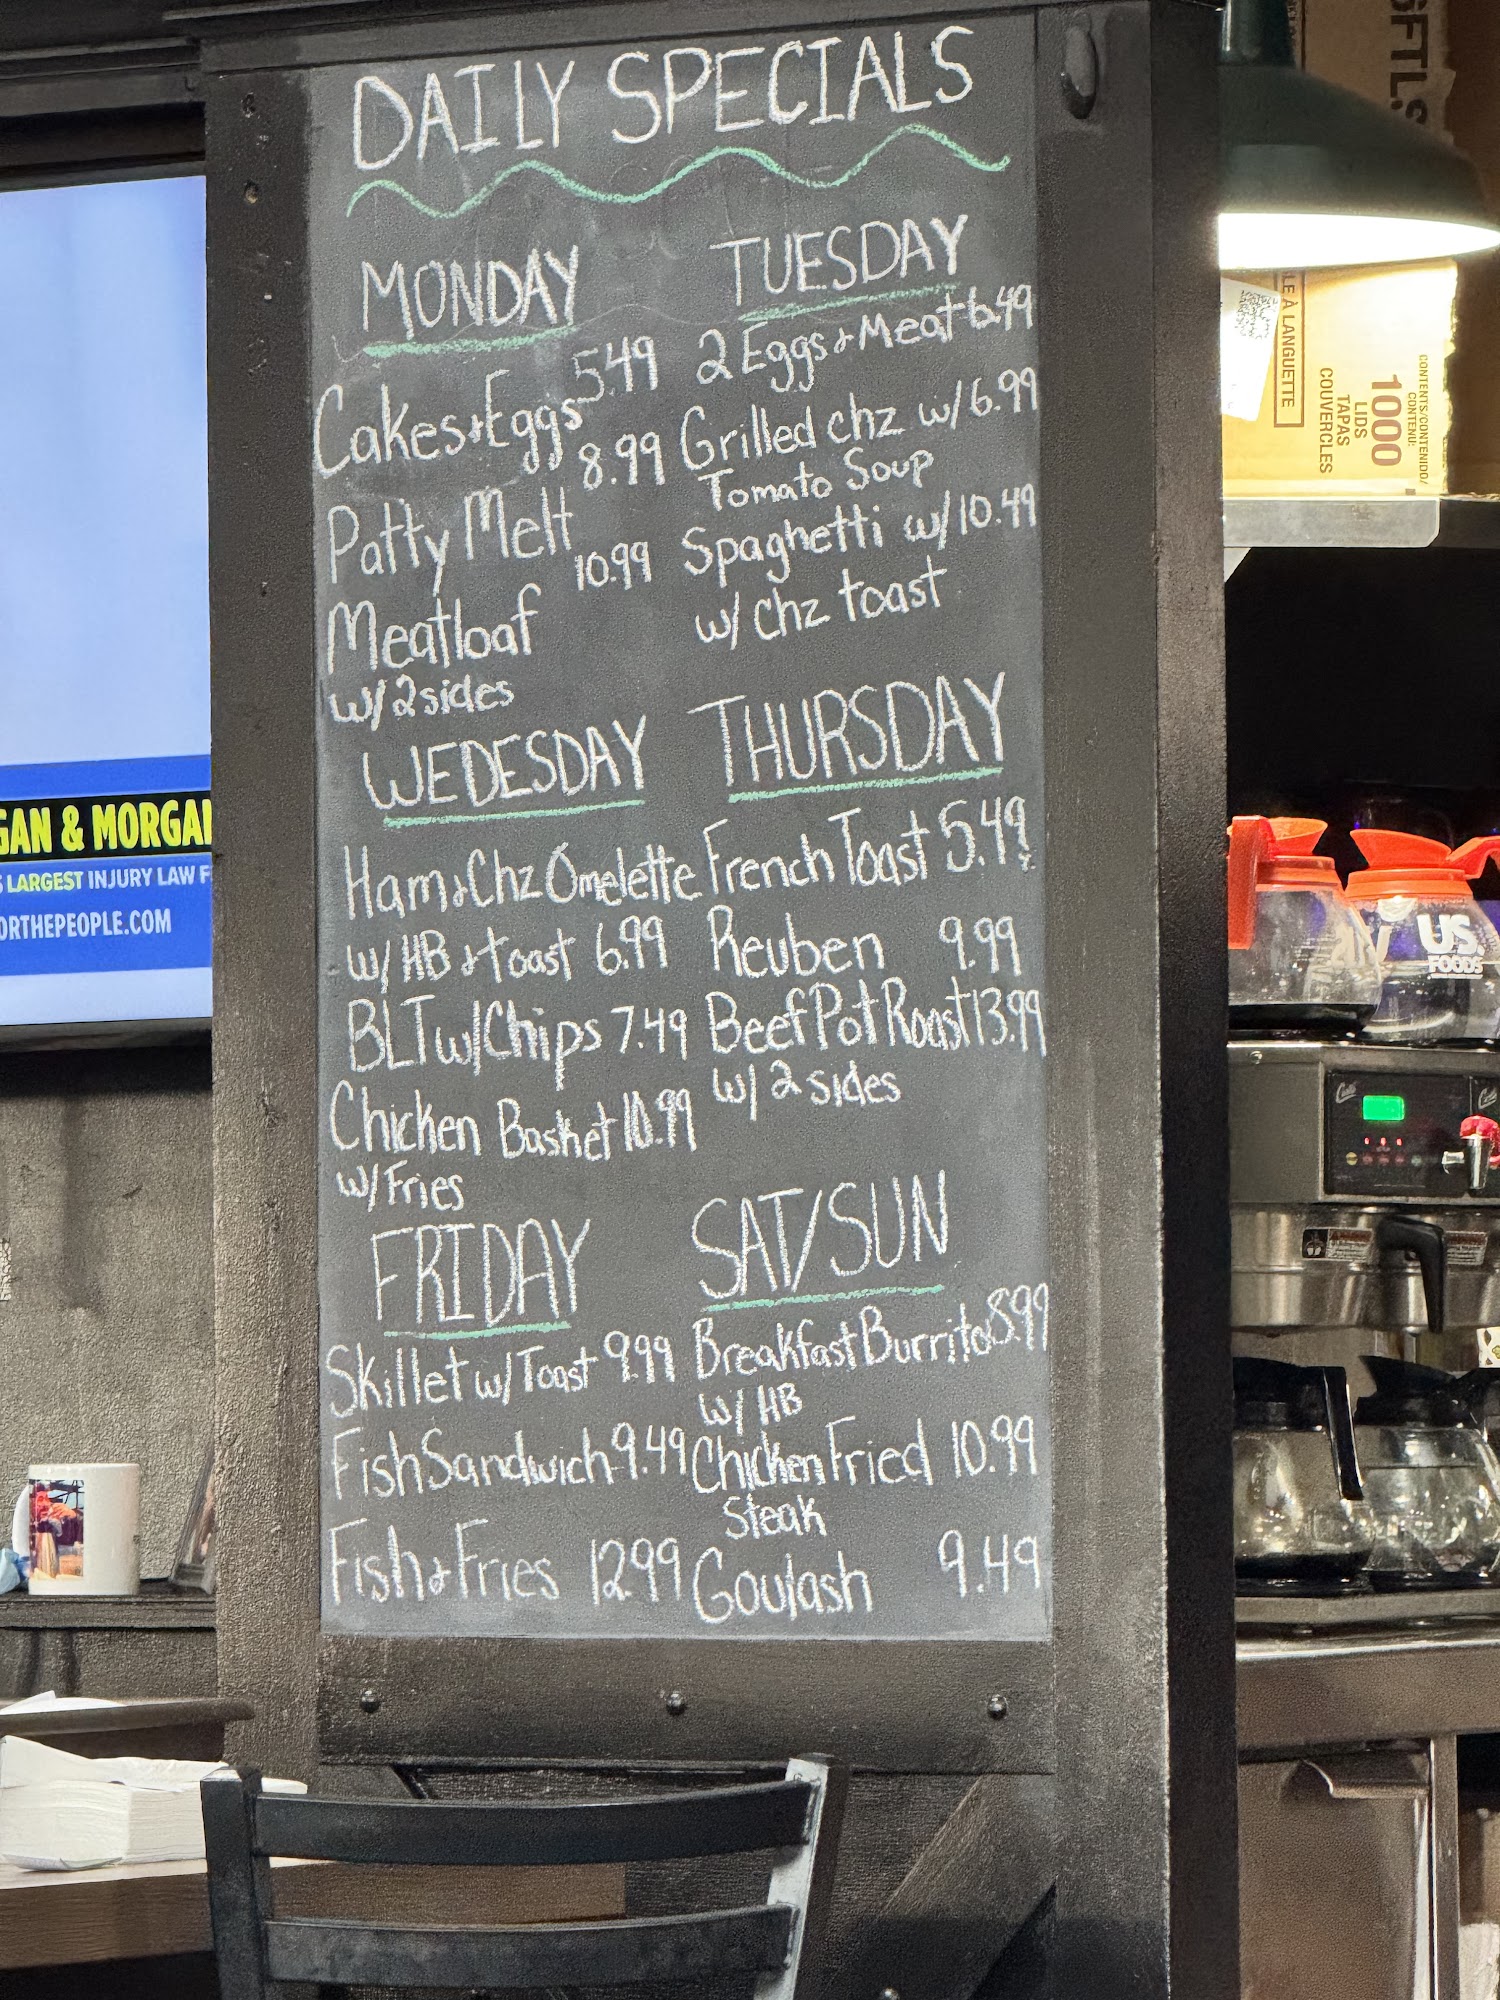 DAILY SPECIALS
MONDAY
Cakes & Eggs 5.49
Patty Melt 8.99
Meatloaf 10.99
w/ 2 sides
TUESDAY
2 Eggs & Meat 6.49
Grilled chz w/ 6.99
Tomato Soup
Spaghetti w/ 10.49
w/ Chz toast
WEDESDAY
Ham & Chz Omelette
w/ HB & toast 6.99
BLT w/ Chips 7.49
Chicken Basket 10.99
w/ Fries
THURSDAY
French Toast 5.49
Reuben 9.99
Beef Pot Roast 13.99
w/ 2 sides
FRIDAY
Skillet w/ Toast 9.99
Fish Sandwich 9.49
Fish & Fries 12.99
SAT/SUN
Breakfast Burrito 8.99
w/ HB
Chicken Fried 10.99
Steak
Goulash 9.49
GAN & MORGAN
LARGEST INJURY LAW F
ORTHEPEOPLE.COM
SFTL.S
LE À LANGUETTE
CONTENTS/CONTENIDO/
CONTENU:
1000
LIDS
TAPAS
COUVERCLES
US
FOODS
Curtis